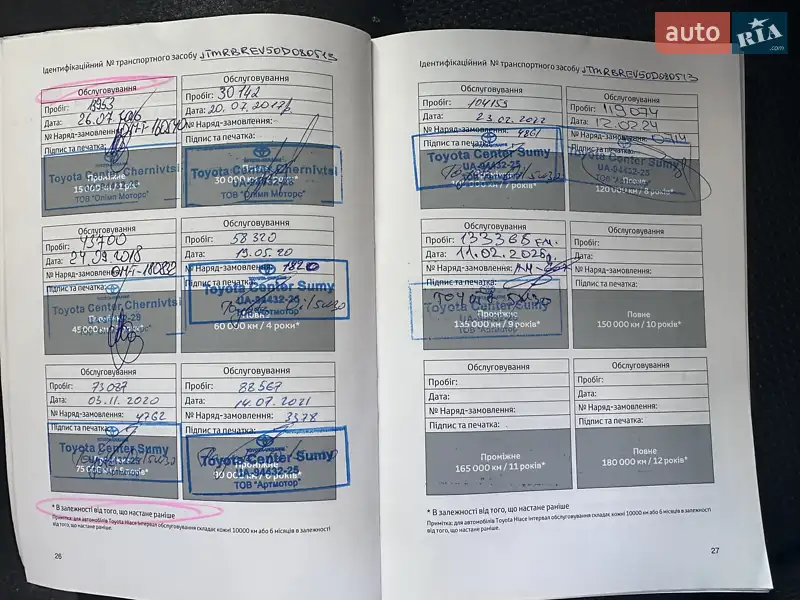 auto RIA .com
Ідентифікаційний № транспортного засобу JTMRBREV50D080513
Обслуговування
Пробіг:
Дата: 26.07.2016
№ Наряд-замовлення:
Підпис та печатка:
Toyota Center Chernivtsi
ТОВ "Олімп Моторс"
Обслуговування
Пробіг: 30 142
Дата: 20.07.2017
№ Наряд-замовлення:
Підпис та печатка:
Toyota Center Chernivtsi
UA-94432-28
ТОВ "Олімп Моторс"
Обслуговування
Пробіг: 43700
Дата: 24.09.2018
№ Наряд-замовлення:
Підпис та печатка:
Toyota Center Chernivtsi
Обслуговування
Пробіг: 58 320
Дата: 19.05.20
№ Наряд-замовлення: 1820
Підпис та печатка:
Toyota Center Sumy
UA-94432-25
ТОВ "Артмотор"
60 000 км / 4 роки*
Обслуговування
Пробіг: 73087
Дата: 03.11.2020
№ Наряд-замовлення: 4762
Підпис та печатка:
Toyota Center Sumy
Обслуговування
Пробіг: 88567
Дата: 14.07.2021
№ Наряд-замовлення: 3378
Підпис та печатка:
Toyota Center Sumy
UA-94432-25
ТОВ "Артмотор"
* В залежності від того, що настане раніше
Примітка: для автомобілів Toyota Hiace інтервал обслуговування складає кожні 10000 км або 6 місяців в залежності
від того, що настане раніше.
26
Ідентифікаційний № транспортного засобу JTMRBREV50D080513
Обслуговування
Пробіг: 104155
Дата: 23.02.2022
№ Наряд-замовлення:
Підпис та печатка:
Toyota Center Sumy
UA-94432-25
Обслуговування
Пробіг: 119074
Дата: 12.02.24
№ Наряд-замовлення: 0714
Підпис та печатка:
Toyota Center Sumy
UA-94432-25
120 000 км / 8 років*
Обслуговування
Пробіг: 133365 км.
Дата: 11.02.2025
№ Наряд-замовлення:
Підпис та печатка:
Toyota 5w30
Проміжне
135 000 км / 9 років*
Обслуговування
Пробіг:
Дата:
№ Наряд-замовлення:
Підпис та печатка:
Повне
150 000 км / 10 років*
Обслуговування
Пробіг:
Дата:
№ Наряд-замовлення:
Підпис та печатка:
Проміжне
165 000 км / 11 років*
Обслуговування
Пробіг:
Дата:
№ Наряд-замовлення:
Підпис та печатка:
Повне
180 000 км / 12 років*
* В залежності від того, що настане раніше
Примітка: для автомобілів Toyota Hiace інтервал обслуговування складає кожні 10000 км або 6 місяців в залежності
від того, що настане раніше.
27